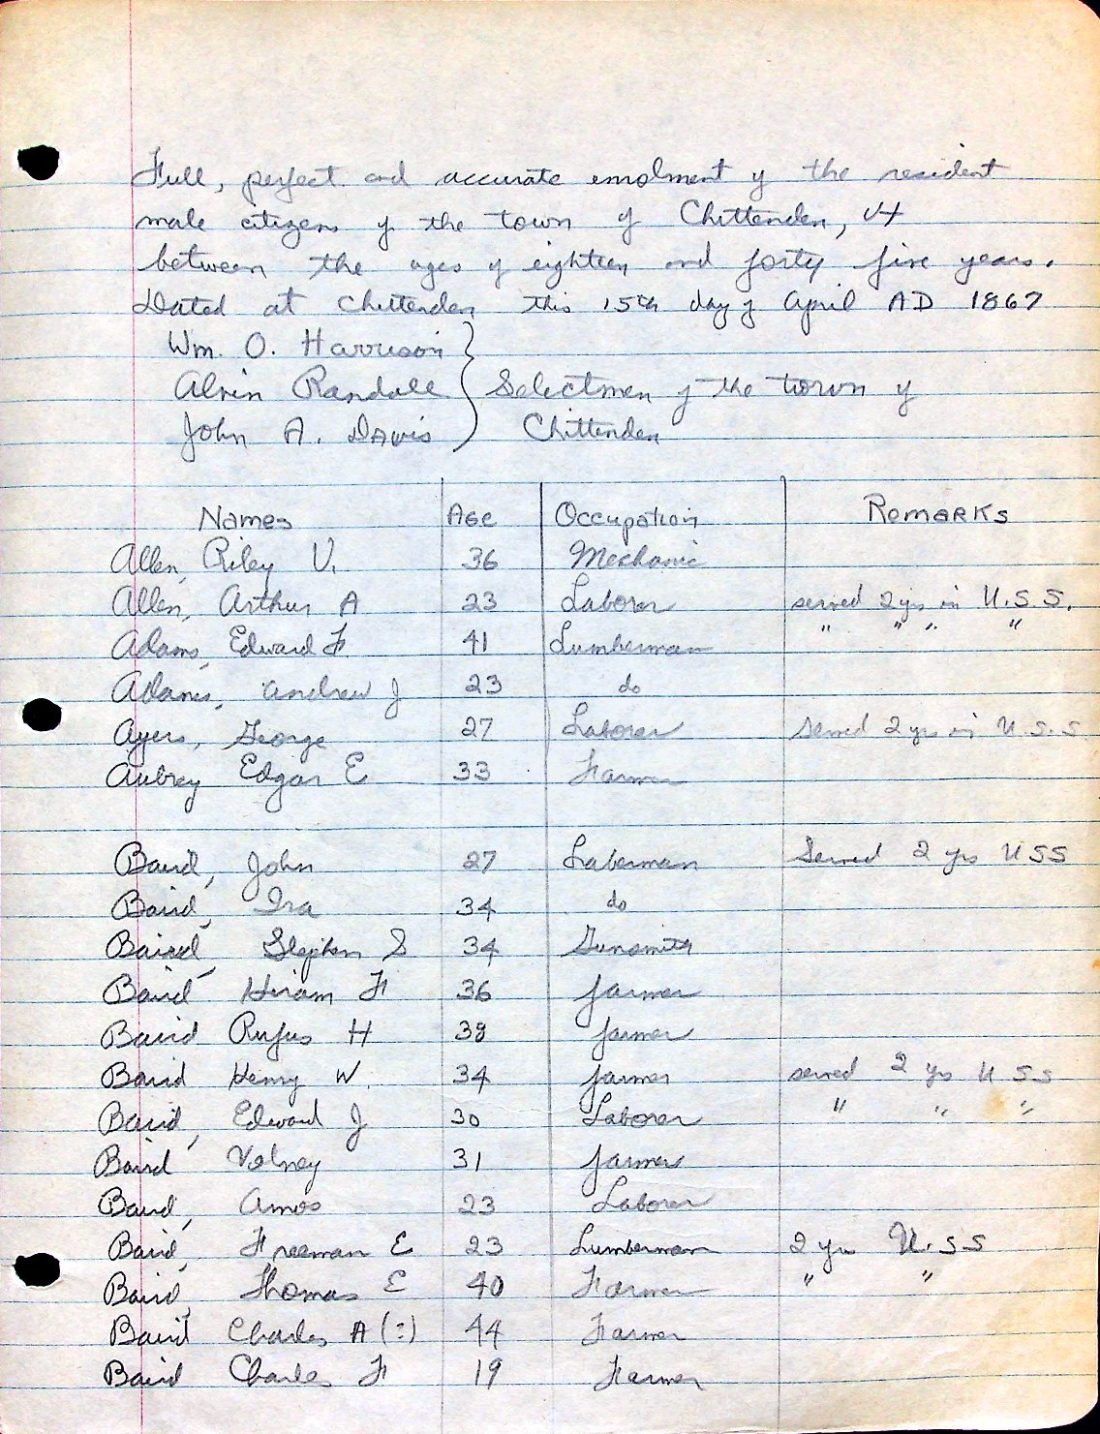 Full, perfect and accurate enrolment of the resident
male citizens of the town of Chittenden, Vt
between the ages of eighteen and forty five years.
Dated at Chittenden this 15th day of April AD 1867
Wm. O. Harrison
Alvin Randall } Selectmen of the town of
John A. Davis Chittenden
Names Age Occupation Remarks
Allen, Riley V. 36 Mechanic
Allen, Arthur A 23 Laborer served 2 yrs in U.S.S.
Adams, Edward F 41 Lumberman " " " "
Adams, Andrew J 23 do
Ayers, George 27 Laborer served 2 yrs in U.S.S
Aubrey Edgar E 33 Farmer
Baird, John 27 Laberman Served 2 yrs USS
Baird, Ira 34 do
Baird, Stephen S 34 Gunsmith
Baird Hiram F 36 farmer
Baird Rufus H 38 farmer
Baird Henry W. 34 farmer served 2 yrs U SS
Baird, Edward J 30 Laborer " " "
Baird Volney 31 farmer
Baird, Amos 23 Laborer
Baird, Freeman E 23 Lumberman 2 yrs U.SS
Baird, Thomas E 40 Farmer " "
Baird Charles A (?) 44 Farmer
Baird Charles F 19 Farmer